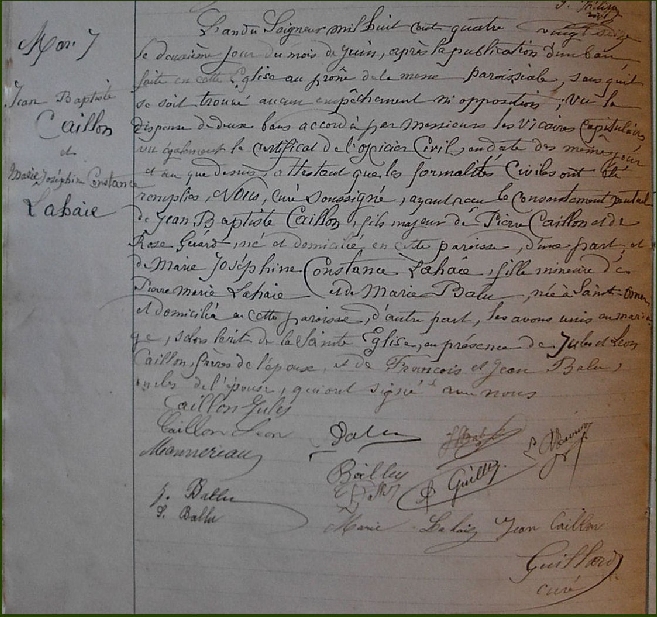 Mar. 7
Jean Baptiste
Caillon
et
Marie Joséphine Constance
Lahaie
L'an du Seigneur mil huit cent quatre vingt seize
le deuxième jour du mois de juin, après la publication d'un ban
faite en cette Eglise au prône de la messe paroissiale, sans qu'il
se soit trouvé aucun empêchement ni opposition; vu la
dispense de deux bans accordée par messieurs les Vicaires Capitulaires
vu également le certificat de l'officier Civil, en date des mêmes jour
et an que dessus, attestant que les formalités Civiles ont été
remplies, Nous, curé soussigné, ayant reçu le consentement mutuel
de Jean Baptiste Caillon, fils majeur de Pierre Caillon et de
Rose Guard, né et domicilié en cette paroisse, d'une part, et
de Marie Joséphine Constance Lahaie, fille mineure de
Pierre Marie Lahaie et de Marie Balu, née à Saint-Omer
et domiciliée en cette paroisse, d'autre part, les avons unis en maria-
ge, selon le rit de la Sainte Eglise, en présence de Jules et Léon
Caillon, frères de l'époux, et de François et Jean Balu,
oncles de l'épouse, qui ont signé avec nous
Caillon Jules
Caillon Léon
Monnereau
Balu
J. Ballu
F. Ballu
Guillet
Marie Lahaie Jean Caillon
Guillard
curé